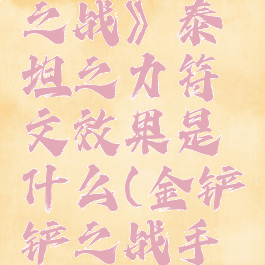 之战》泰
坦之力符
文效果是
什么(金铲
铲之战手